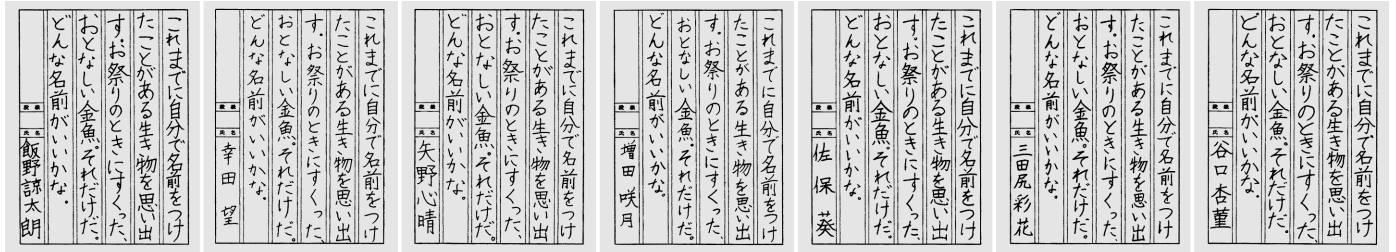 これまでに自分で名前をつけ
たことがある生き物を思い出
す。お祭りのときにすくった、
おとなしい金魚。それだけだ。
どんな名前がいいかな。
段級
氏名
飯野諒太朗
これまでに自分で名前をつけ
たことがある生き物を思い出
す。お祭りのときにすくった、
おとなしい金魚。それだけだ。
どんな名前がいいかな。
段級
氏名
幸田 望
これまでに自分で名前をつけ
たことがある生き物を思い出
す。お祭りのときにすくった、
おとなしい金魚。それだけだ。
どんな名前がいいかな。
段級
氏名
矢野心晴
これまでに自分で名前をつけ
たことがある生き物を思い出
す。お祭りのときにすくった、
おとなしい金魚。それだけだ。
どんな名前がいいかな。
段級
氏名
増田 咲月
これまでに自分で名前をつけ
たことがある生き物を思い出
す。お祭りのときにすくった、
おとなしい金魚。それだけだ。
どんな名前がいいかな。
段級
氏名
佐保 葵
これまでに自分で名前をつけ
たことがある生き物を思い出
す。お祭りのときにすくった、
おとなしい金魚。それだけだ。
どんな名前がいいかな。
段級
氏名
三田尻彩花
これまでに自分で名前をつけ
たことがある生き物を思い出
す。お祭りのときにすくった、
おとなしい金魚。それだけだ。
どんな名前がいいかな。
段級
氏名
谷口杏菫